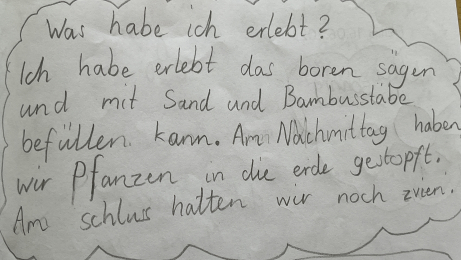 Was habe ich erlebt?
Ich habe erlebt das boren sägen
und mit Sand und Bambusstäbe
befüllen kann. Am Nachmittag haben
wir Pfanzen in die erde gestopft.
Am schluss hatten wir noch zvieri.